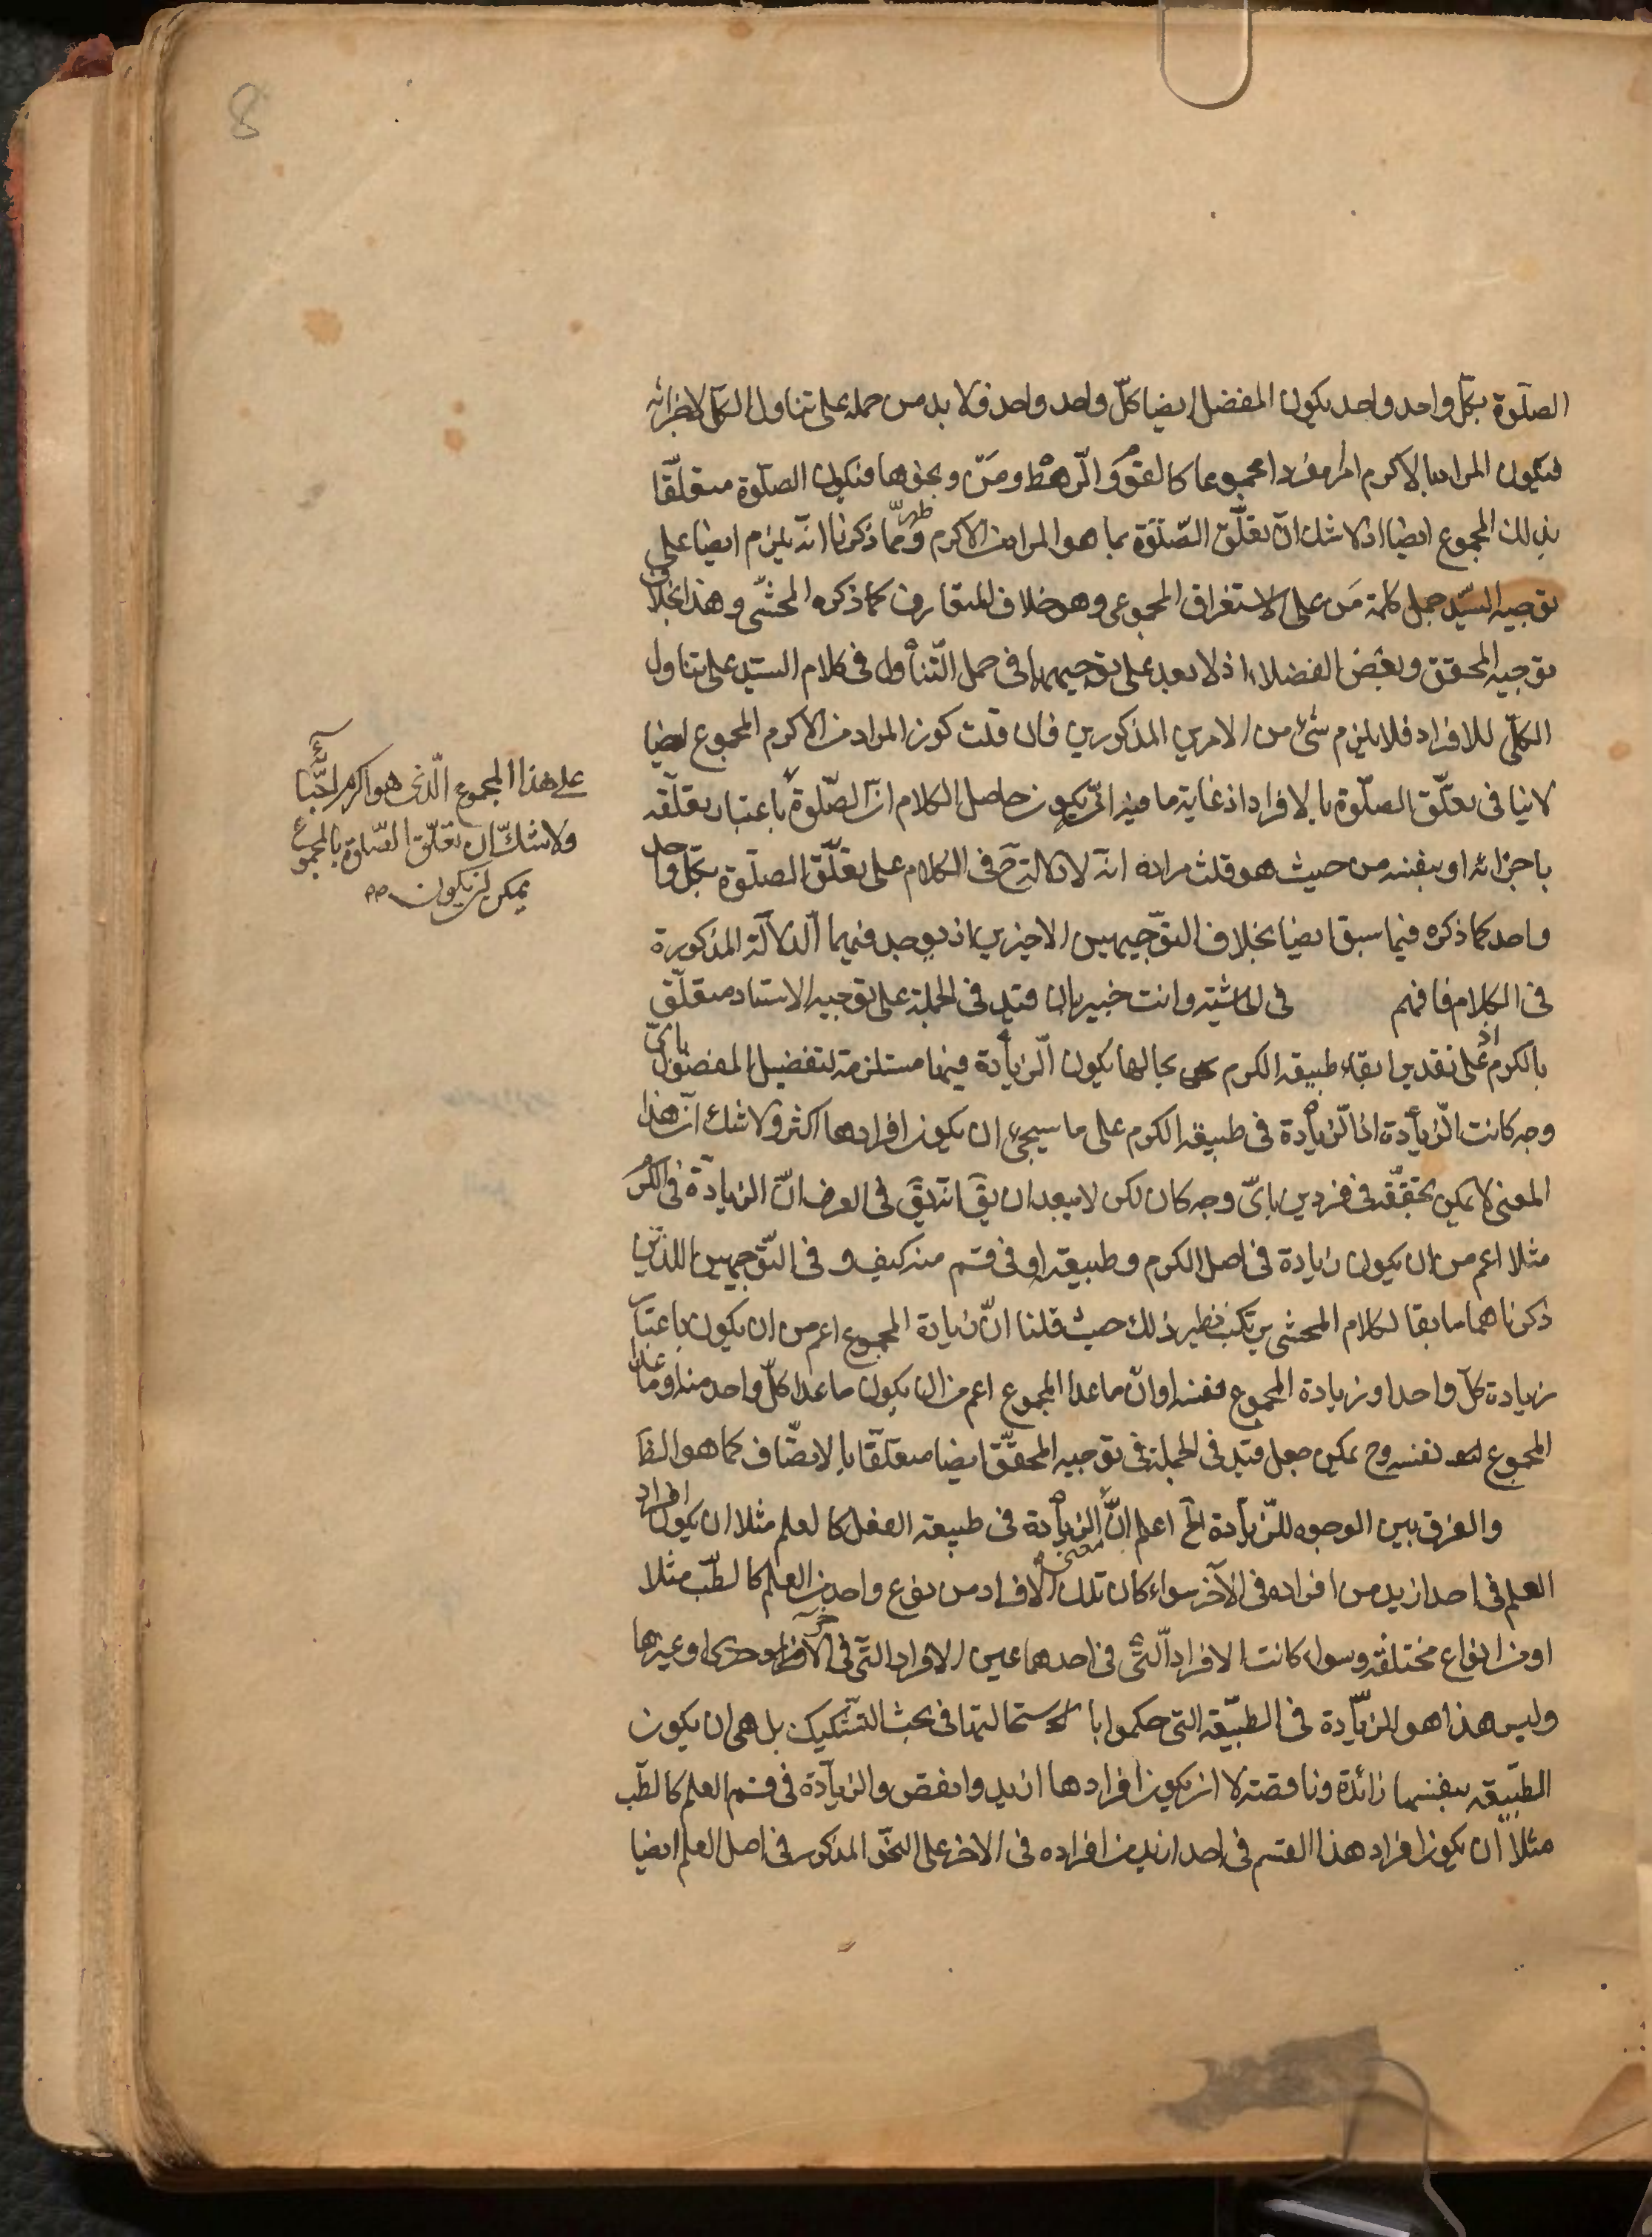 8
الصلوة بكلّ واحد واحد يكون المفضل ايضا كلّ واحد واحد فلا بد من حمله على تناول الكل لاجزائه
فيكون المراد بالاكرم امرا مفردا مجموعا كالقوم والرّهط ومَن ونحوها فيكون الصلوة متعلّقا
بذلك المجموع ايضا اذ لا شك انّ تعلّق الصّلوة بما هو المراد من الاكرم وممّا ذكرنا انّه يلزم ايضا على
توجيه السيّد حمل كلمة مَن على الاستغراق المجموعى وهو خلاف المتعارف كما ذكره المحشّى وهذا بخلاف
توجيه المحقق وبعض الفضلاء اذ لا بعد على توجيههما فى حمل التّناول فى كلام السيّد على تناول
الكلّى للافراد فلا يلزم شئ من الامرين المذكورين فان قلت كون المراد من الاكرم المجموع ايضا
لا ينافى تعلّق الصلّوة بالافراد اذ غاية ما فيه ان يكون حاصل الكلام انّ الصّلوة باعتبار تعلّقه
باجزائه او بنفسه من حيث هو قلت مراده انّه لا دلالة ح فى الكلام على تعلّق الصلّوة بكلّ واحد
واحد كما ذكره فيما سبق ايضا بخلاف التوّجيهين الاخيرين اذ يوجد فيهما الدّلالة المذكورة
فى الكلام فافهم فى الحاشية وانت خبير بان قيد فى الجملة على توجيه الاستاد متعلّق
بالكرم اذ على تقدير ابقاء طبيعة الكرم بحالها يكون الزّيادة فيها مستلزمة لتفضيل المفضول باىّ
وجه كانت الزّيادة اذ الزّيادة فى طبيعة الكرم على ما سيجئ ان يكون افرادها اكثر ولا شك انّ هذا
المعنى لا يمكن تحققه فى فردين باىّ وجه كان لكن لا يبعد ان يقَ انّه يقَ فى العرف انّ الزيادة فى الكرم
مثلا اعم من ان يكون زيادة فى اصل الكرم وطبيعته او فى قسم منه كيف و فى التّوجيهين اللذين
ذكرناهما سابقا لكلام المحشى يرتكب نظير ذلك حيث قلنا انّ زيادة المجموع اعم من ان يكون باعتبار
زيادة كلّ واحد او زيادة المجموع نفسه او انّ ما عدا المجموع اعم من ان يكون ما عدا كلّ واحد منه او ما عدا
المجموع نفسه وح يمكن جعل قيد فى الجملة فى توجيه المحقّق ايضا متعلّقا بالاتصّاف كما هو الظَ
والفرق بين الوجوه للزّيادة الخ اعلم انّ الزيادة فى طبيعة الفعل كالعلم مثلا ان يكون افراد
العلم فى احد ازيد من افراده فى الآخر سواء كان تلك الافراد من نوع واحد من العلم كالطّب مثلا
او من انواع مختلفة وسواء كانت الافراد الّتى فى احدهما عين الافراد الّتى فى الآخر او غيرها
وليس هذا هو الزيّادة فى الطبيّعة التى حكموا باستحالتها فى بحث التشّكيك بل هى ان يكون
الطبيّعة بنفسها زائدة وناقصة لا ان يكون افرادها ازيد وانقص والزيادة فى قسم العلم كالطّب
مثلا ان يكون افراد هذا القسم فى احد ازيد من افراده فى الاخر على النحّو المذكور فى اصل العلم ايضا
على هذا المجموع الّذى هو اكرم
ولا شكّ ان تعلّق الصّلوة بالمجموع
يمكن ان يكون